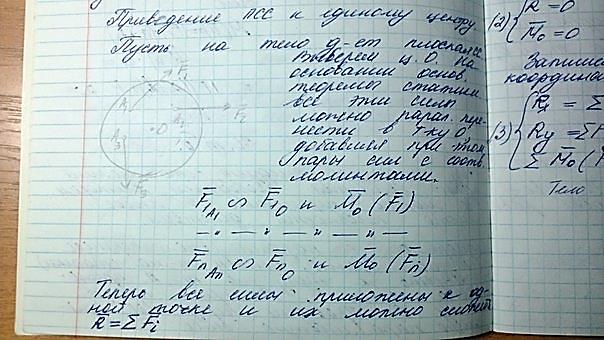 Приведение ПСС к единому центру
Пусть на тело д-ет плоская с.с.
Выберем ц. О. На
основании основ.
теоремы статики
все эти силы
можно парал. пере-
нести в т-ку О,
добавляя при этом
пары сил с соотв.
моментами.
F̅₁
A₁
O
A₂
F̅₂
A₃
F̅₃
F̅₁A₁ ∽ F̅₁O и M̅o (F̅₁)
— „ — „ — „ — „ —
F̅nAn ∽ F̅nO и M̅o (F̅n)
Теперь все силы приложены к од-
ной точке и их можно сложить
R̅ = Σ F̅i
(2) { R̅ = 0
M̅o = 0
Запишем
координа
(3) { Rx = Σ
Ry = Σ F
Σ M̅o (F̅
Тело